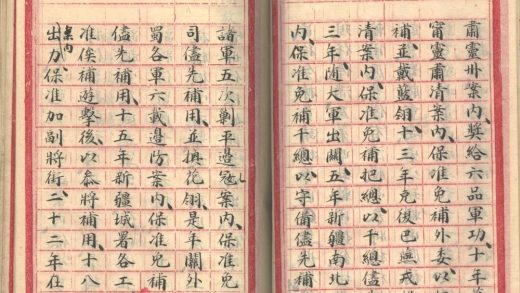 肅靈州案內、獎給六品軍功、十年
甯靈肅清案內、保准免補外委、以
補並戴藍翎、十三年克復巴燕戎
清案內、保准免補把總、以千總儘
三年、隨大軍出關、五年新疆南北
內、保准免補千總、以守備儘先補
諸軍五次剿平邊寇案內、保准免
司儘先補用、並換花翎、是年關外
蜀各軍六載邊防案內、保准免補
儘先補用、十五年新疆城署各工
准俟補遊擊後、以參將補用、十八
出力案內、保准加副將銜、二十二年在